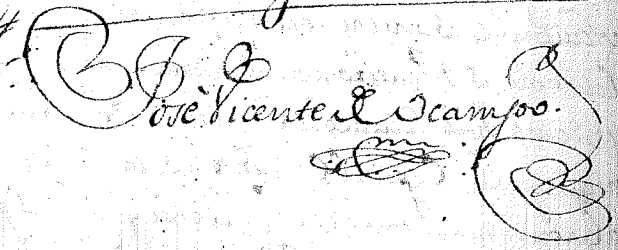 Josè Vicente de Ocampo.